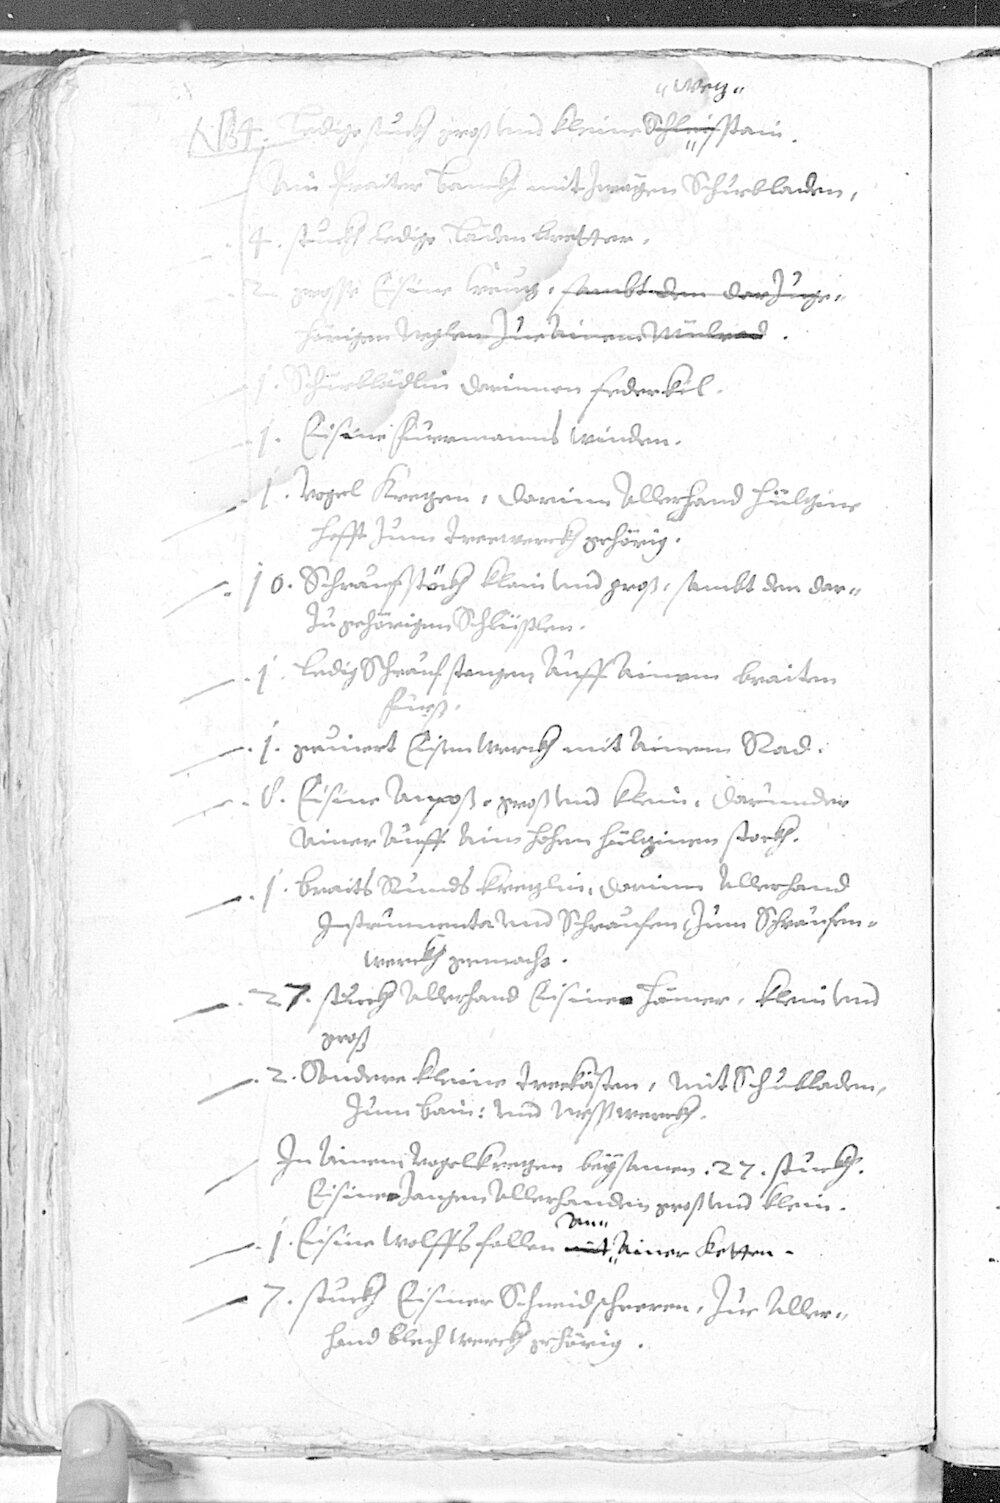 "Wetz"
NB 4. Ledige stuckh groß und kleine Schleifstain.
Ain Praiter Banckh mit zwayen Schubladen,
4. stuckh Ledige Laden bretter.
2. grosse Eisine Creuz, sambt den darzuge=
hörigen Neglen zue ainem Mülrad.
1. Schublädlin darinnen federkil.
1. Eisine Fuermanns winden.
1. Vogel Kretzen, darinn Allerhand hültzine
hefft zum Treewerckh gehörig.
10. Schraufstöckh klain und groß, sambt den dar=
zu gehörigen Schlüßlen.
1. Ledig Schraufstangen Auff Ainem braiten
fueß.
1. Eisen Werckh mit Ainem Rad.
8. Eisine Anposs, groß und klein, darunder
Ainer Auff Aim hohen hültzinen stockh.
1. braits Runds Kretzlin, darinn Allerhand
Instrumenta und Schraufen, zum Schraufen=
werckh gemacht.
27. stuckh Allerhand Eisine Hämer, klein und
groß
2. Sondere kleine Treekästen, mit Schubladen,
zum bain: und Messwerckh.
In Ainem Vogelkretzen beysamen .27. stuckh.
Eisine Zangen Allerhanden groß und klein.
An=
1. Eisine Wolffs fallen mit Ainer Ketten.
7. stuckh Eisiner Schneidscheeren, zue Aller=
hand blech Werckh gehörig.